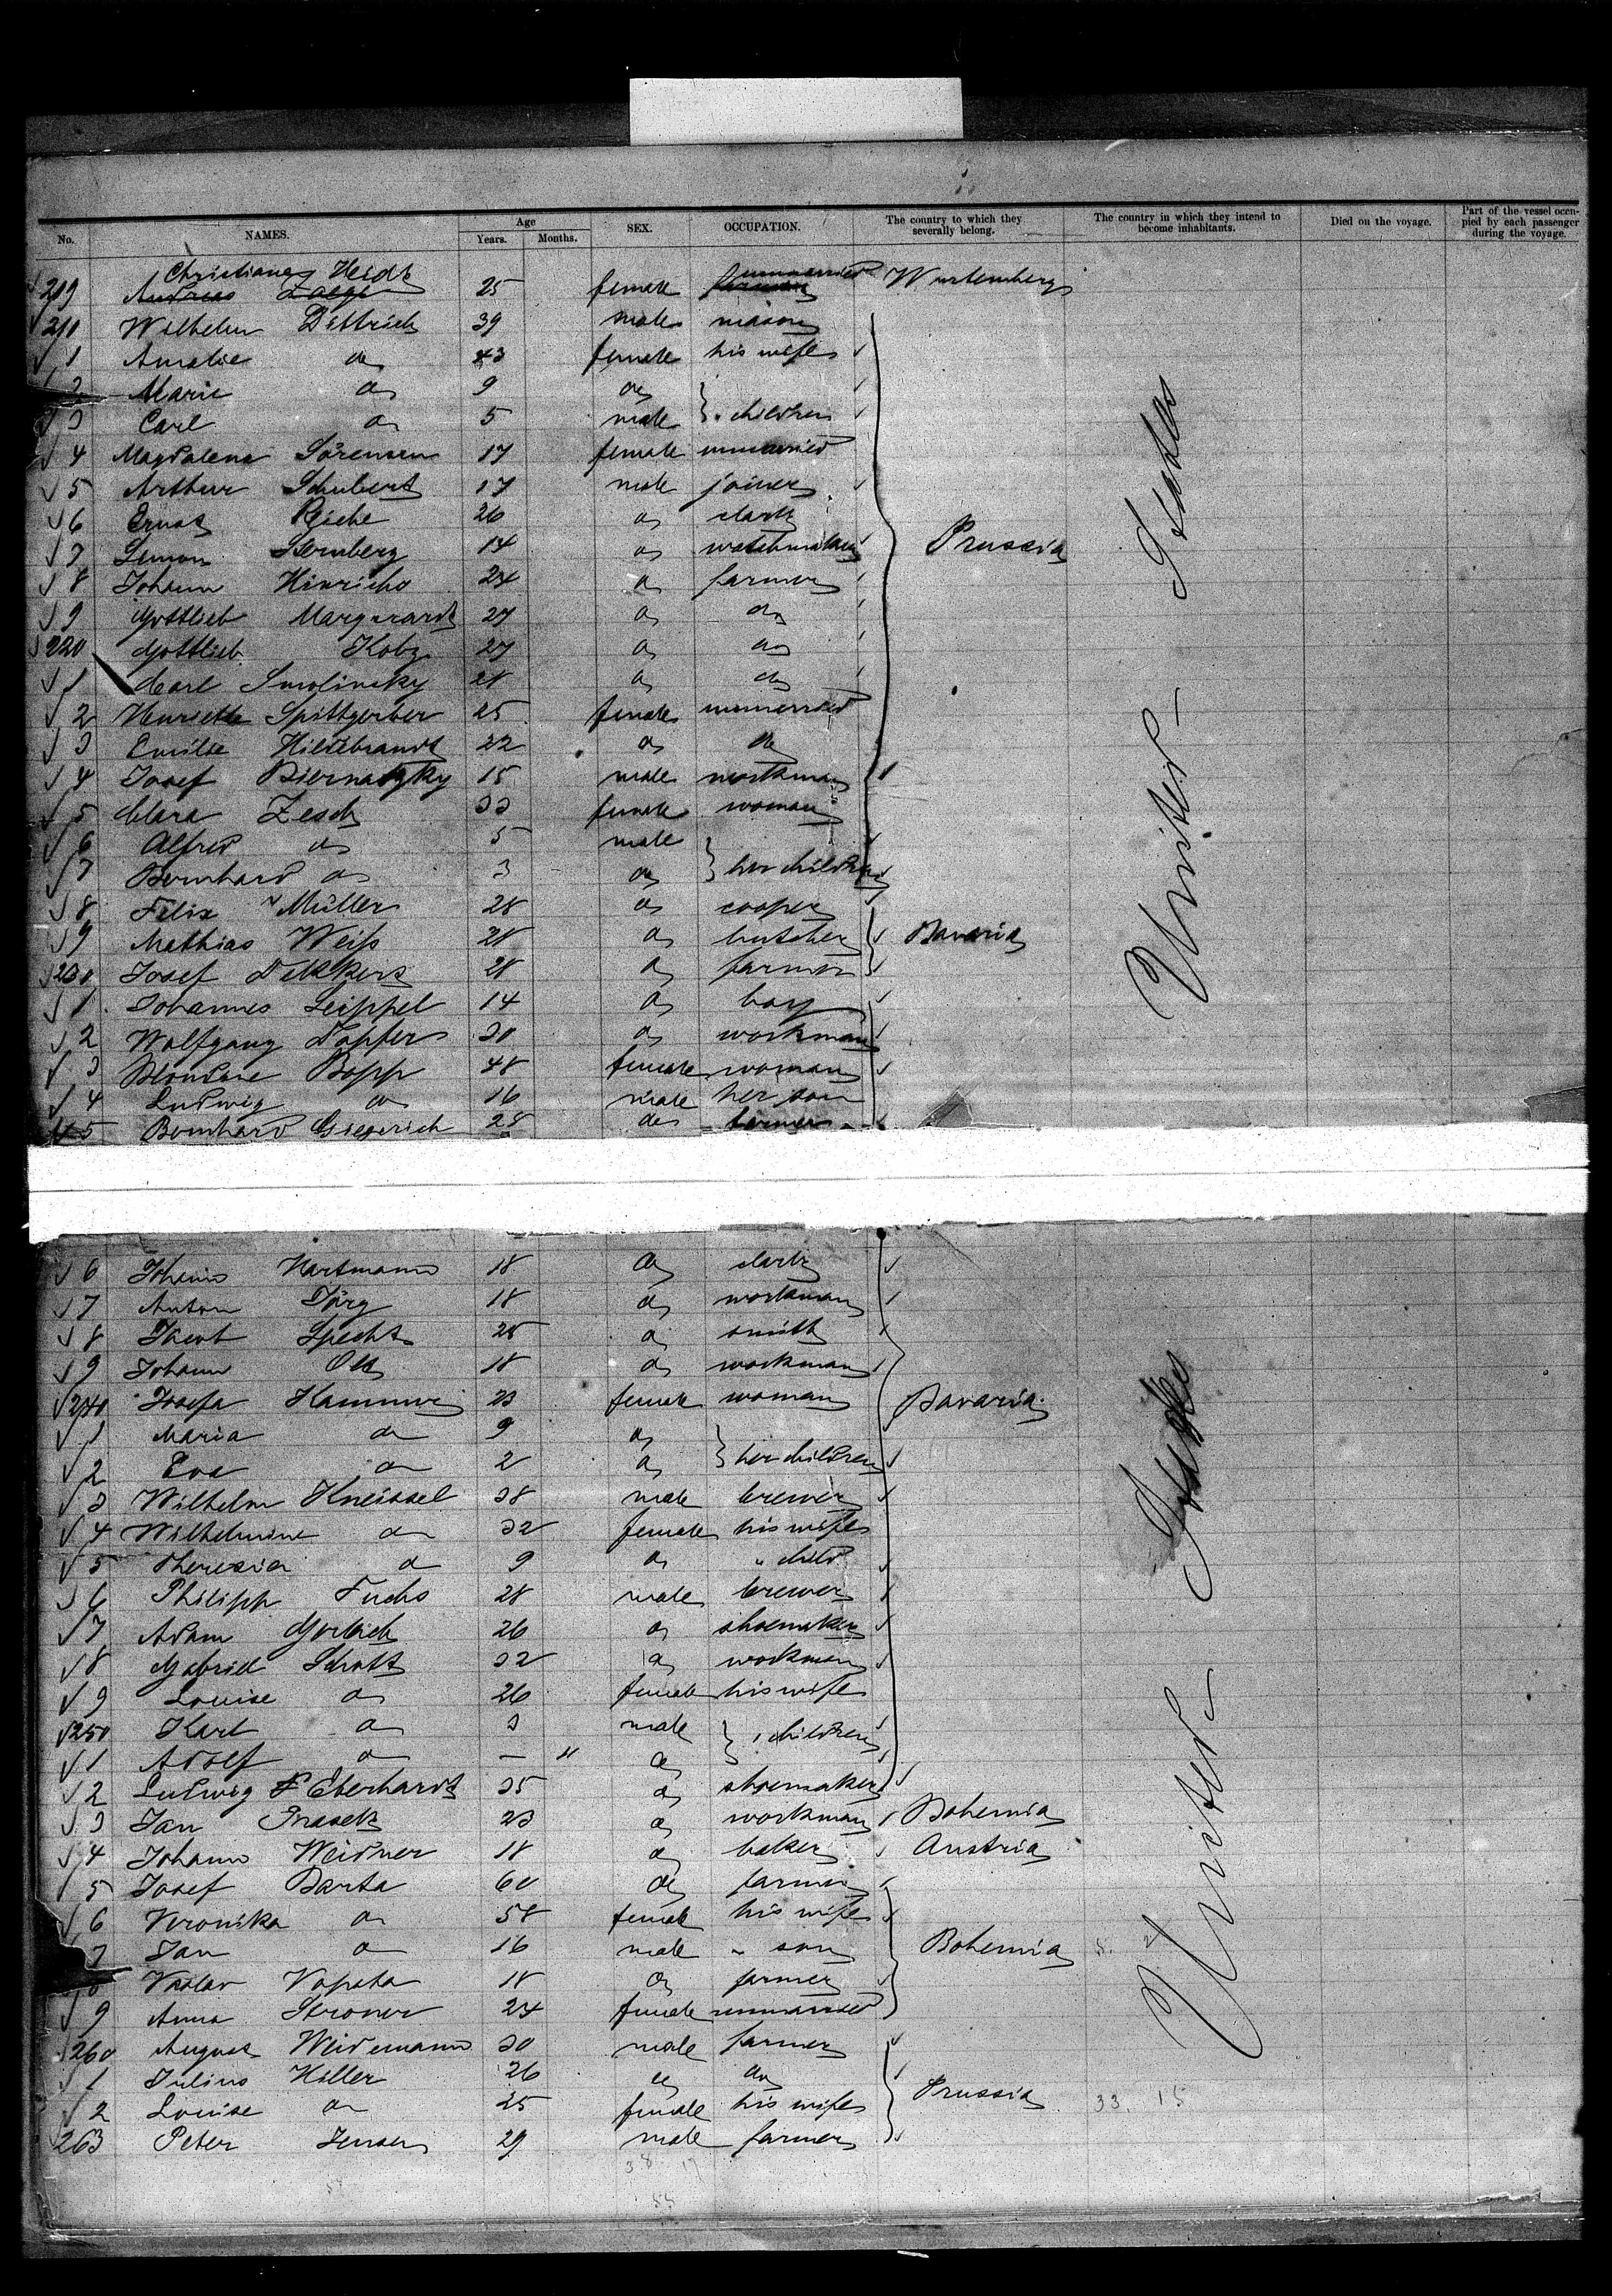 No. NAMES. Age Years. Months. SEX. OCCUPATION. The country to which they severally belong. The country in which they intend to become inhabitants. Died on the voyage. Part of the vessel occupied by each passenger during the voyage.
Christiane Heidt unmarried
209 Andreas 25 female farmer Wurtemberg
210 Wilhelm Dittrich 39 male mason
1 Amalie do 43 female his wife
2 Marie do 9 do
3 Carl do 5 male " children
4 Magdalena Sörensen 17 female unmarried
5 Arthur Schubert 17 male joiner
6 Ernst Riehe 26 do clark
7 Simon Sternberg 14 do watchmaker Prussia
8 Johann Hinrichs 24 do farmer
9 Gottlieb Margrardt 27 do do
220 Gottlieb Koby 27 do do
1 Carl Smolinsky 28 do do
2 Henriette Spittgerber 25 female unmarried
3 Emilie Hildebrandt 22 do do
4 Josef Biernatzky 15 male workman
5 Clara Zesch 33 female woman
6 Alfred do 5 male
7 Bernhard do 3 do her children
8 Felix Müller 28 do cooper
9 Mathias Weiß 28 do butcher Bavaria
230 Josef Dekkers 28 do farmer
1 Johannes Leippel 14 do boy
2 Wolfgang Dopfer 30 do workman
3 Bopp 48 female woman
4 Ludwig do 16 male her son
5 Bernhard Giegerich 25 do farmer
United States
6 Hartmann 18 do clark
7 Anton Jörg 18 do workman
8 Jacob Specht 25 do smith
9 Johann Ott 18 do workman
240 Josefa 23 female woman Bavaria.
1 Maria do 9 do
2 Eva do 2 do her children
3 Wilhelm Kneissel 38 male brewer
4 Wilhelmine do 32 female his wife
5 Theresia do 9 do " child
6 Philipp Fuchs 28 male brewer
7 Adam Gerlich 26 do shoemaker
8 Gabriel Schott 32 do workman
9 Louise do 26 female his wife
250 Karl do 3 male
1 Adolf do — 11 do " children
2 Ludwig Eberhardt 35 do shoemaker
3 Jan Prasek 23 do workman Bohemia
4 Johann Weidner 18 do baker Austria
5 Josef Barta 60 do farmer
6 Veronika do 58 female his wife
7 Jan do 16 male " son Bohemia
8 Vaclav Vopata 18 do farmer
9 Anna Stroner 24 female unmarried
260 August Weidemann 30 male farmer
1 Julius Hiller 26 do do
2 Louise do 25 female his wife Prussia 33. 15
263 Peter Jensen 29 male farmer
United States
38 17